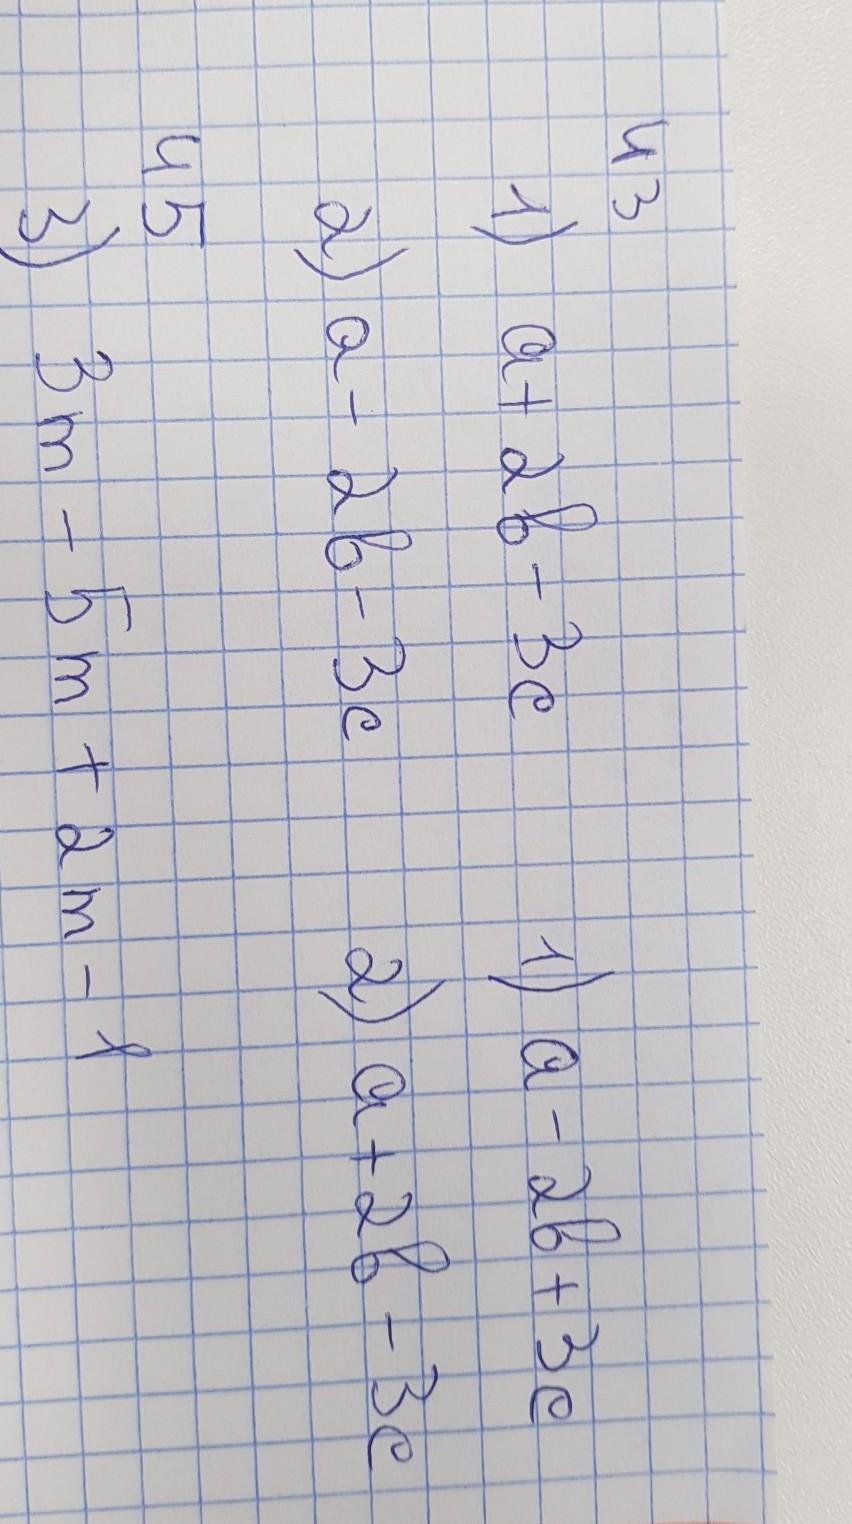 43
1) a + 2b - 3c 1) a - 2b + 3c
2) a - 2b - 3c 2) a + 2b - 3c
45
3) 3m - 5m + 2m - 1